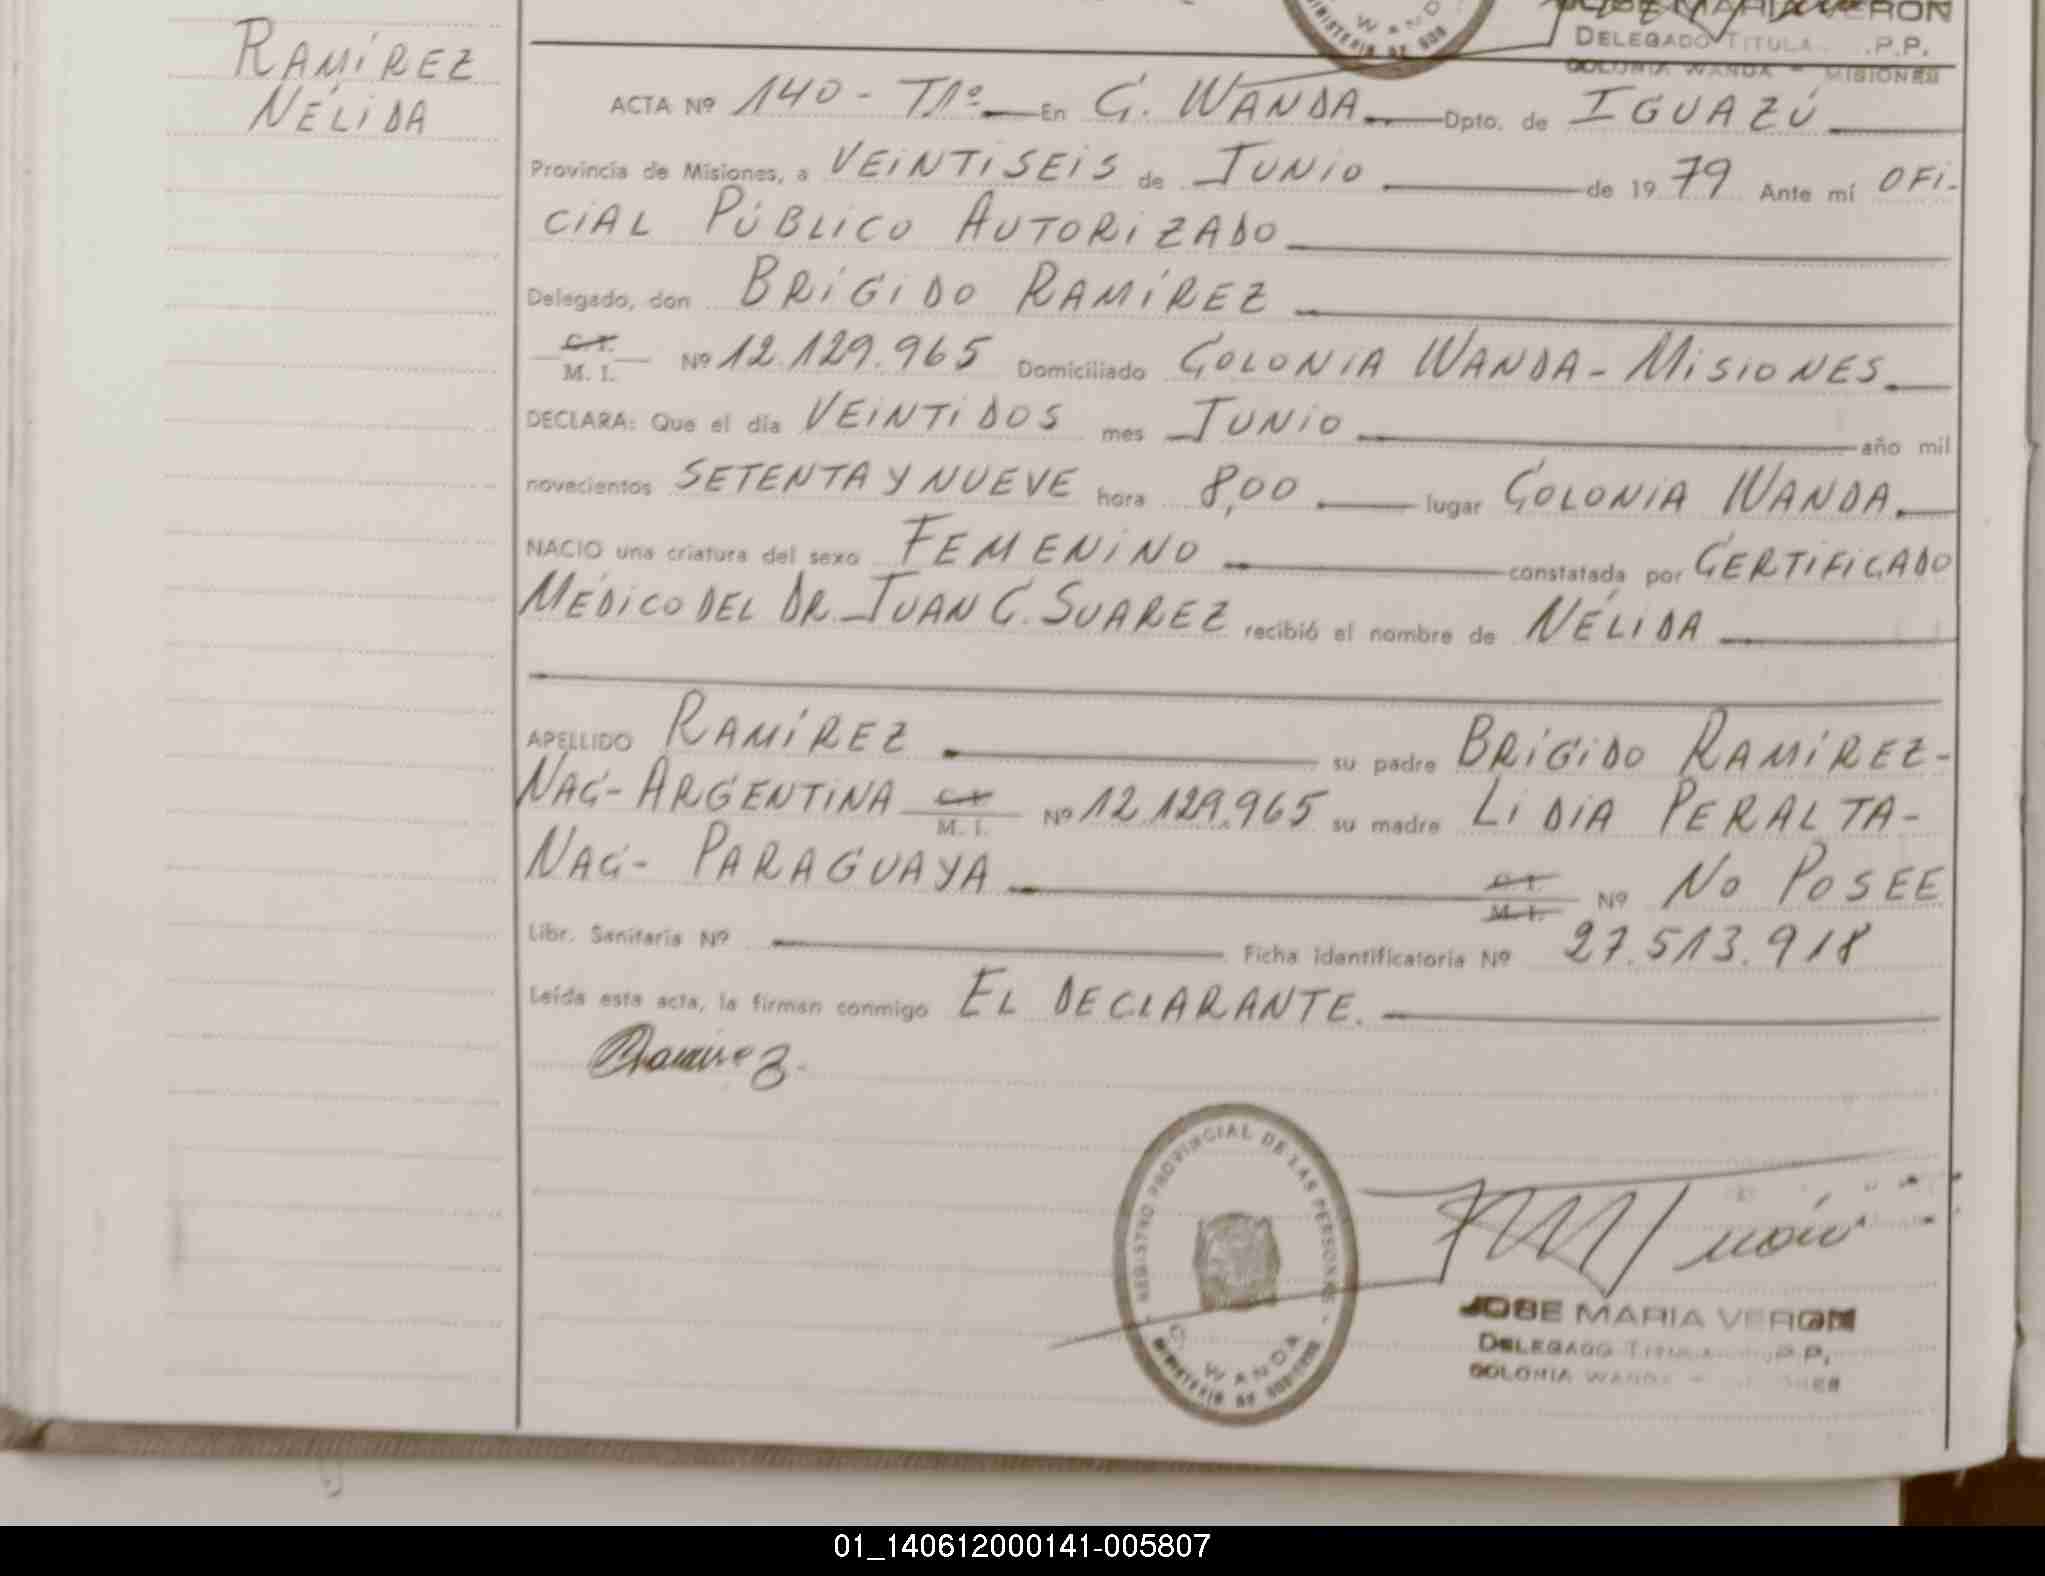 RAMÍREZ
NÉLIDA
JOSE MARIA VERON
DELEGADO TITULA .P.P.
COLONIA WANDA - MISIONES
ACTA Nº 140 - T1º En C. WANDA. Dpto. de IGUAZÚ
Provincia de Misiones, a VEINTISEIS de JUNIO de 1979 Ante mí OFI-
CIAL PÚBLICO AUTORIZADO
Delegado, don BRÍGIDO RAMÍREZ
C.I. M. I. Nº 12.129.965 Domiciliado COLONIA WANDA - MISIONES.
DECLARA: Que el día VEINTIDOS mes JUNIO año mil
novecientos SETENTA Y NUEVE hora 8,00 lugar COLONIA WANDA.
NACIO una criatura del sexo FEMENINO constatada por CERTIFICADO
MÉDICO DEL DR. JUAN C. SUAREZ recibió el nombre de NÉLIDA
APELLIDO RAMÍREZ su padre BRÍGIDO RAMÍREZ-
NAC- ARGENTINA C.I. M. I. Nº 12.129.965 su madre LIDIA PERALTA-
NAC- PARAGUAYA C.I. M. I. Nº NO POSEE
Libr. Sanitaria Nº Ficha identificatoria Nº 27.513.918
Leída esta acta, la firman conmigo EL DECLARANTE.
Ramirez.
REGISTRO PROVINCIAL DE LAS PERSONAS
C. WANDA
MINISTERIO DE GOBIERNO
JOSE MARIA VERON
DELEGADO TITULA P.P.
COLONIA WANDA -
01_140612000141-005807